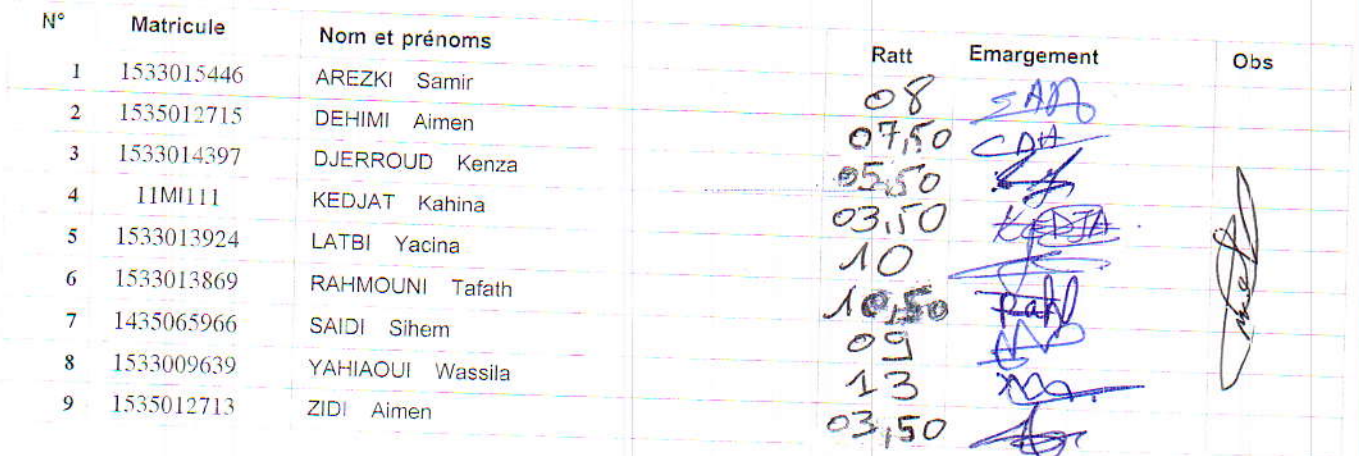 N° Matricule Nom et prénoms Ratt Emargement Obs
1 1533015446 AREZKI Samir 08
2 1535012715 DEHIMI Aimen 07,50
3 1533014397 DJERROUD Kenza 05,50
4 11MI111 KEDJAT Kahina 03,50 KEDJA
5 1533013924 LATBI Yacina 10
6 1533013869 RAHMOUNI Tafath 10,50 Rahl
7 1435065966 SAIDI Sihem 09
8 1533009639 YAHIAOUI Wassila 13
9 1535012713 ZIDI Aimen 03,50